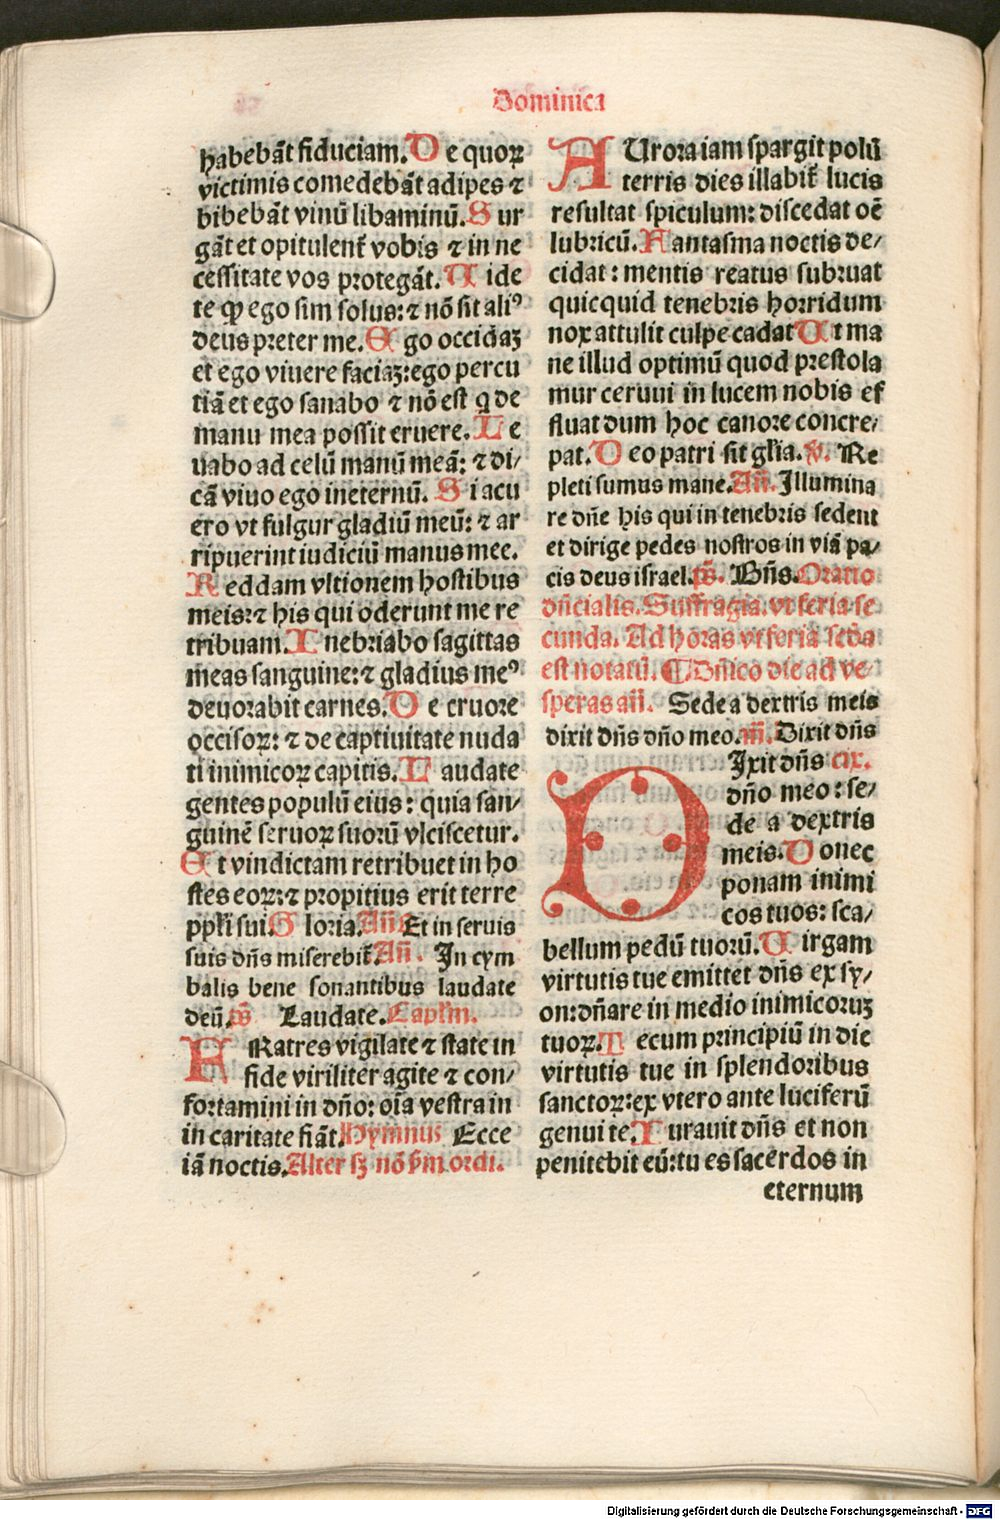 Dominica
habebāt fiduciam. De quoꝝ
victimis comedebāt adipes ⁊
bibebāt vinū libaminū. Sur
gāt et opitulent᷑ vobis ⁊ in ne
cessitate vos protegāt. Uide
te ꝙ ego sim solus: ⁊ nō sit aliꝰ
deus preter me. Ego occidaꝫ
et ego viuere faciaꝫ: ego percu
tiā et ego sanabo ⁊ nō est q̄ de
manu mea possit eruere. Le
uabo ad celū manū meā: ⁊ di/
cā viuo ego ineternū. Si acu
ero vt fulgur gladiū meū: ⁊ ar
ripuerint iudiciū manus mee.
Reddam vltionem hostibus
meis: ⁊ his qui oderunt me re
tribuam. Inebriabo sagittas
meas sanguine: ⁊ gladius meꝰ
deuorabit carnes. De cruore
occisoꝝ: ⁊ de captiuitate nuda
ti inimicoꝝ capitis. Laudate
gentes populū eius: quia san/
guinē seruoꝝ suorū vlciscetur.
Et vindictam retribuet in ho
stes eoꝝ: ⁊ propitius erit terre
ppl̄i sui. Gloria. Añ. Et in seruis
suis dn̄s miserebit᷑. Añ. In cym
balis bene sonantibus laudate
deū. p̄s Laudate. Capl̄m.
FRatres vigilate ⁊ state in
fide viriliter agite ⁊ con/
fortamini in dn̄o: oīa vestra in
in caritate fiāt. Hymnus Ecce
iā noctis. Alter sꝫ nō s̄m ordi.
AUrora iam spargit polū
terris dies illabit᷑ lucis
resultat spiculum: discedat oē
lubricū. Fantasma noctis de/
cidat: mentis reatus subruat
quicquid tenebris horridum
nox attulit culpe cadat Ut ma
ne illud optimū quod prestola
mur ceruui in lucem nobis ef
fluat dum hoc canore concre/
pat. Deo patri sit gl̄ia. v̄. Re
pleti sumus mane. Añ. Illumina
re dn̄e his qui in tenebris sedent
et dirige pedes nostros in viā pa/
cis deus israel. p̄s. Bn̄s. Oratio
dn̄icialis. Suffragia. vt feria se
cunda. Ad horas vt feria scd̄a
est notatū. ¶ Dn̄ico die ad ve-
speras añ. Sede a dextris meis
dixit dn̄s dn̄o meo. Dixit dn̄s
DIxit dn̄s cix.
dn̄o meo: se/
de a dextris
meis. Donec
ponam inimi
cos tuos: sca/
bellum pedū tuorū. Uirgam
virtutis tue emittet dn̄s ex sy/
on: dn̄are in medio inimicoruꝫ
tuoꝝ. Tecum principiū in die
virtutis tue in splendoribus
sanctoꝝ: ex vtero ante luciferū
genui te. Iurauit dn̄s et non
penitebit eū: tu es sacerdos in
eternum
Digitalisierung gefördert durch die Deutsche Forschungsgemeinschaft - DFG